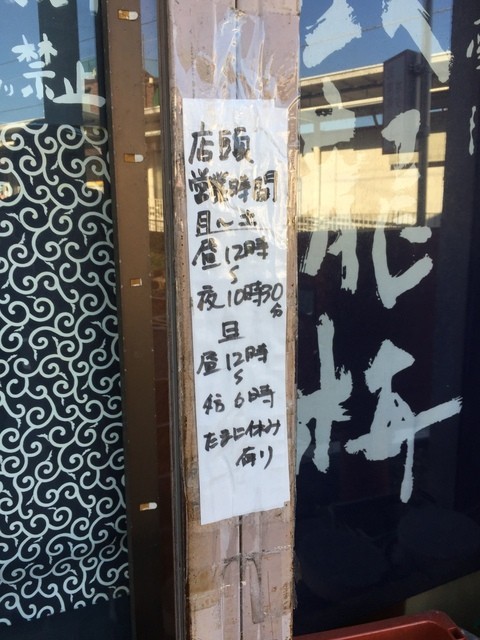 禁止
店頭
営業時間
月〜土
昼12時
〜
夜10時30分
日
昼12時
〜
夕方6時
たまに休み
有り